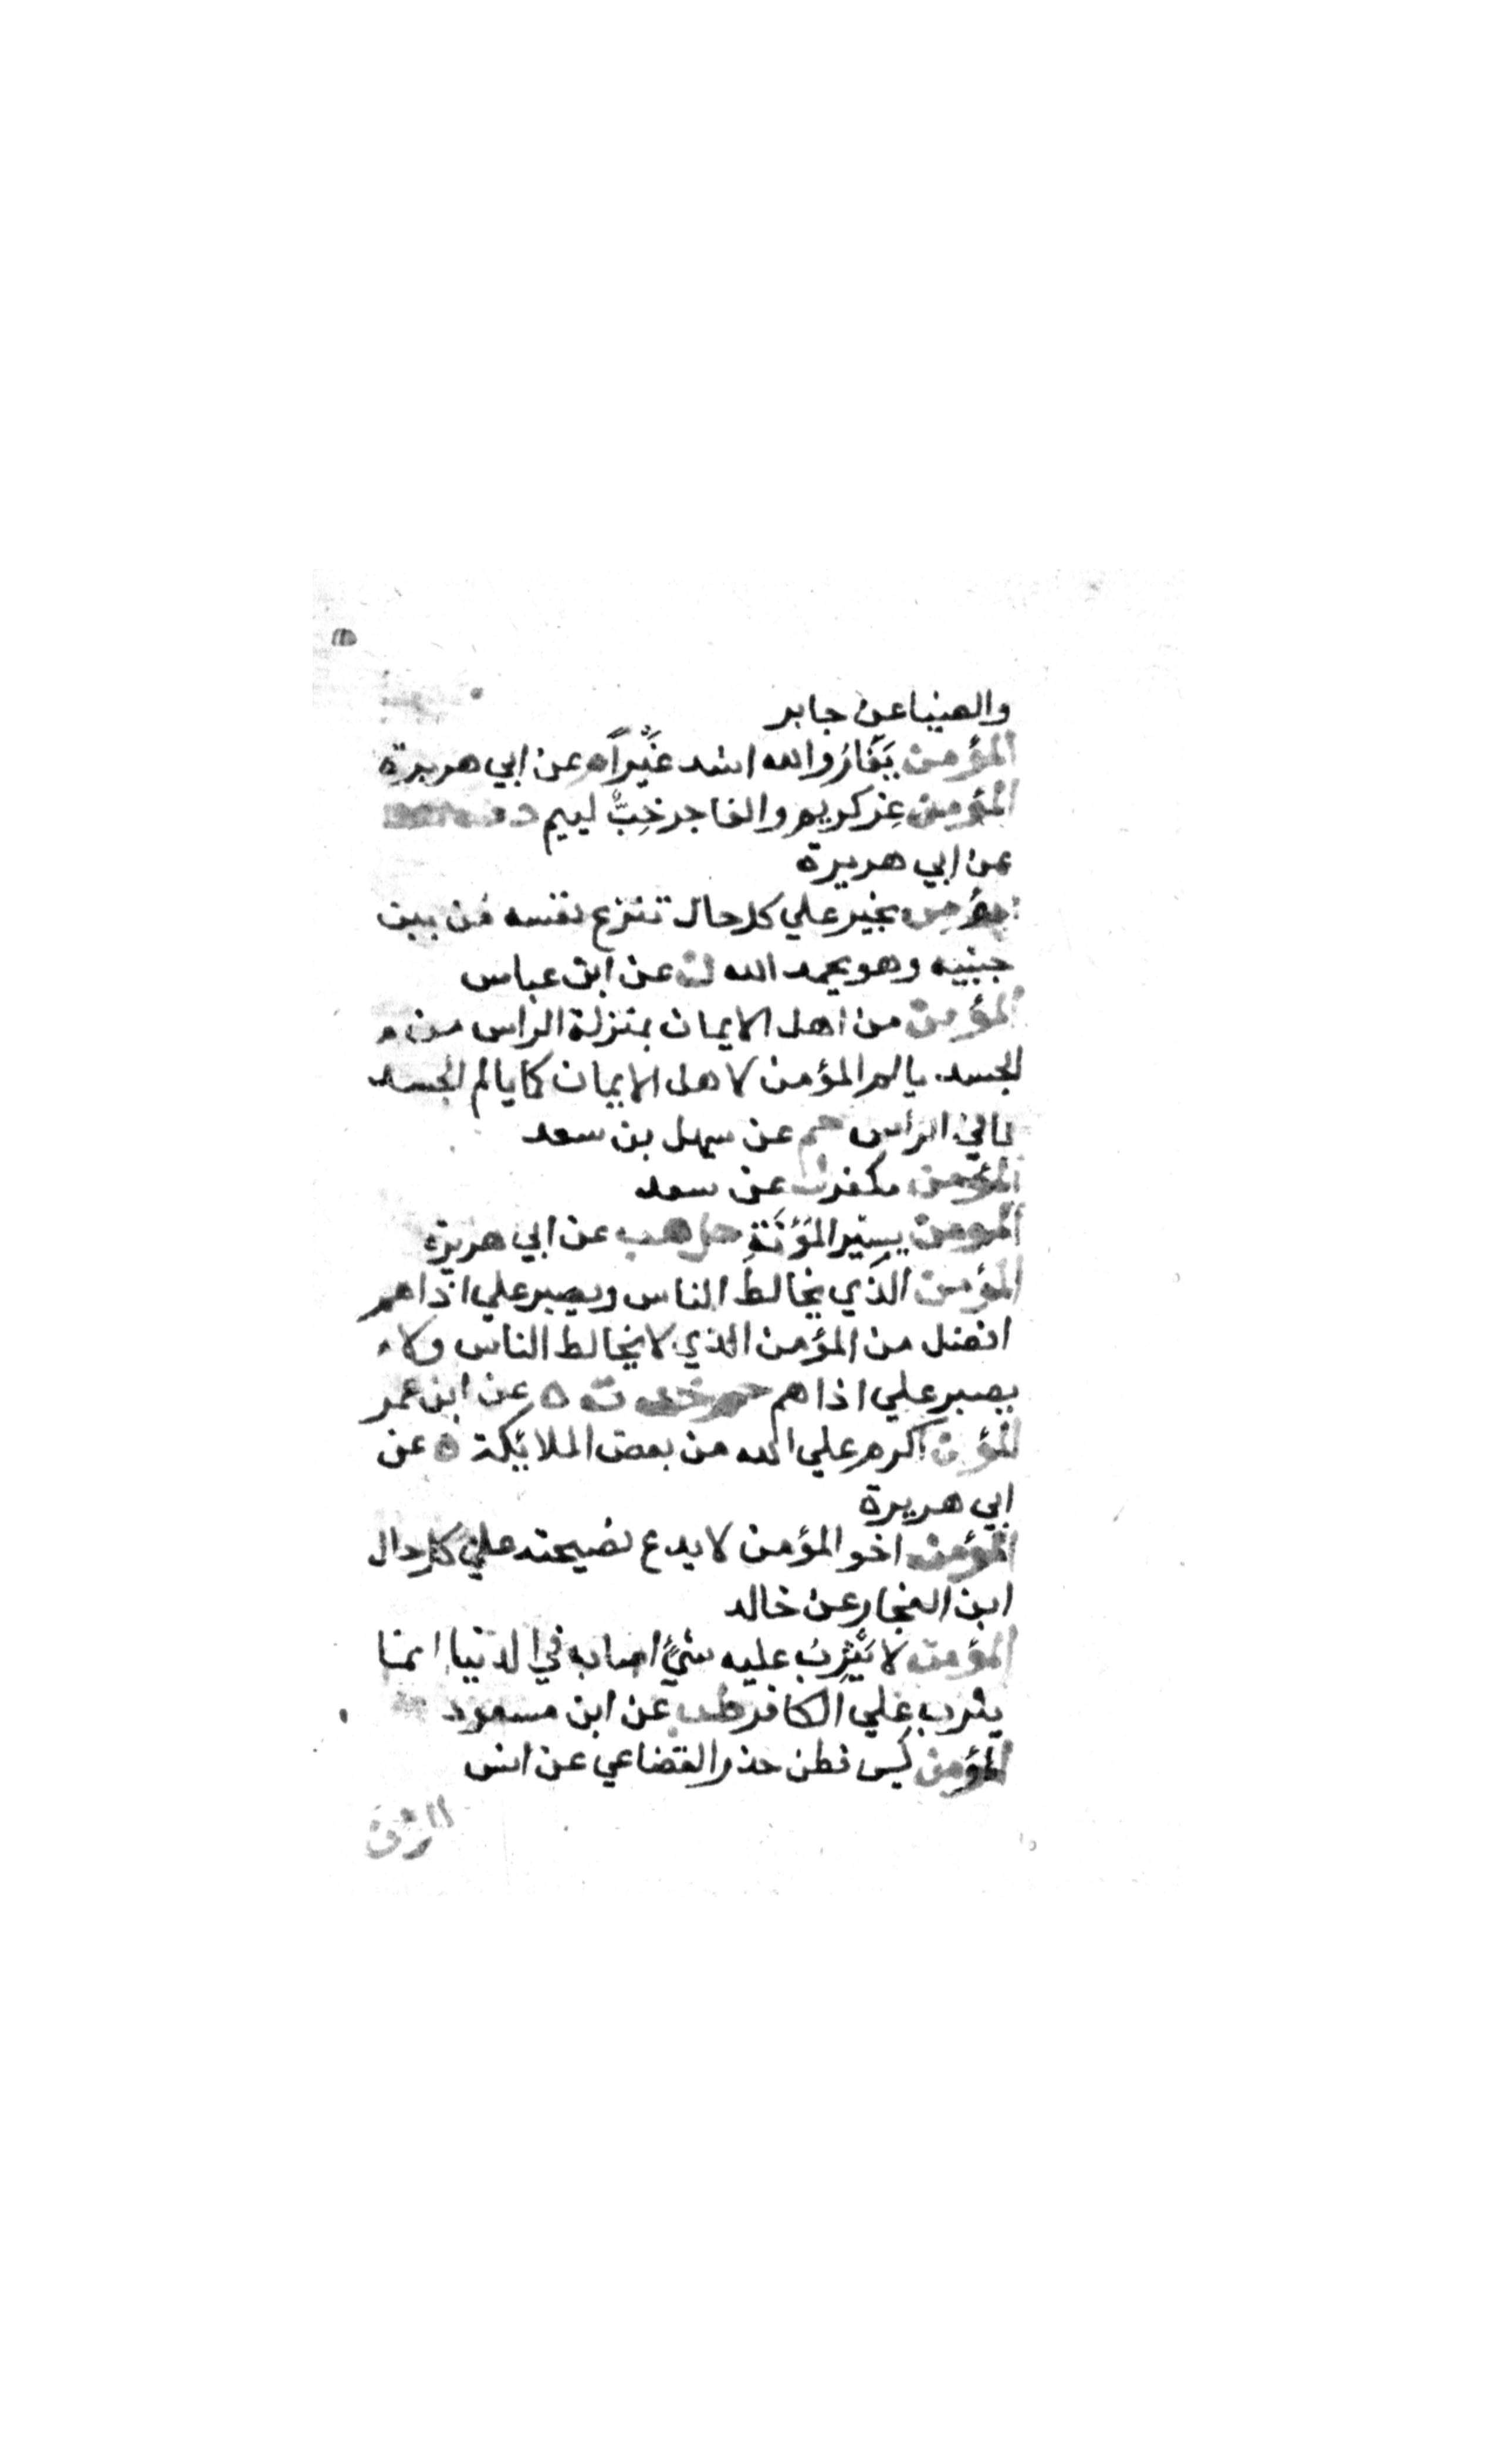 والضيا عن جابر
المؤمن يَغَارُ والله اشد غَيْراً م عن ابي هريرة
المؤمن غِر كريم والفاجر خِبٌّ لييم د ت
عن ابي هريرة
المؤمن بخير علي كل حال تنزع نفسه من بين
جنبيه وهو يحمد الله ن عن ابن عباس
المؤمن من اهل الايمان بمنزلة الراس من
الجسد يالم المؤمن لاهل الايمان كما يالم الجسد
لما في الراس حم عن سهل بن سعد
المؤمن مكفر ك عن سعد
المومن يسير المؤنَةِ حل هب عن ابي هريرة
المؤمن الذي يخالط الناس ويصبر علي اذاهم
افضل من المؤمن الذي لا يخالط الناس ولا
يصبر علي اذاهم حم خد ت ه عن ابن عمر
المؤمن اكرم علي الله من بعض الملائكة ه عن
ابي هريرة
المؤمن اخو المؤمن لا يدع نصيحته علي كل حال
ابن النجار عن خالد
المؤمن لا يُثَرِبُ عليه شيٌ اصابه في الدنيا انما
يثرب علي الكافر طب عن ابن مسعود
المؤمن كيس فطن حذر القضاعي عن انس